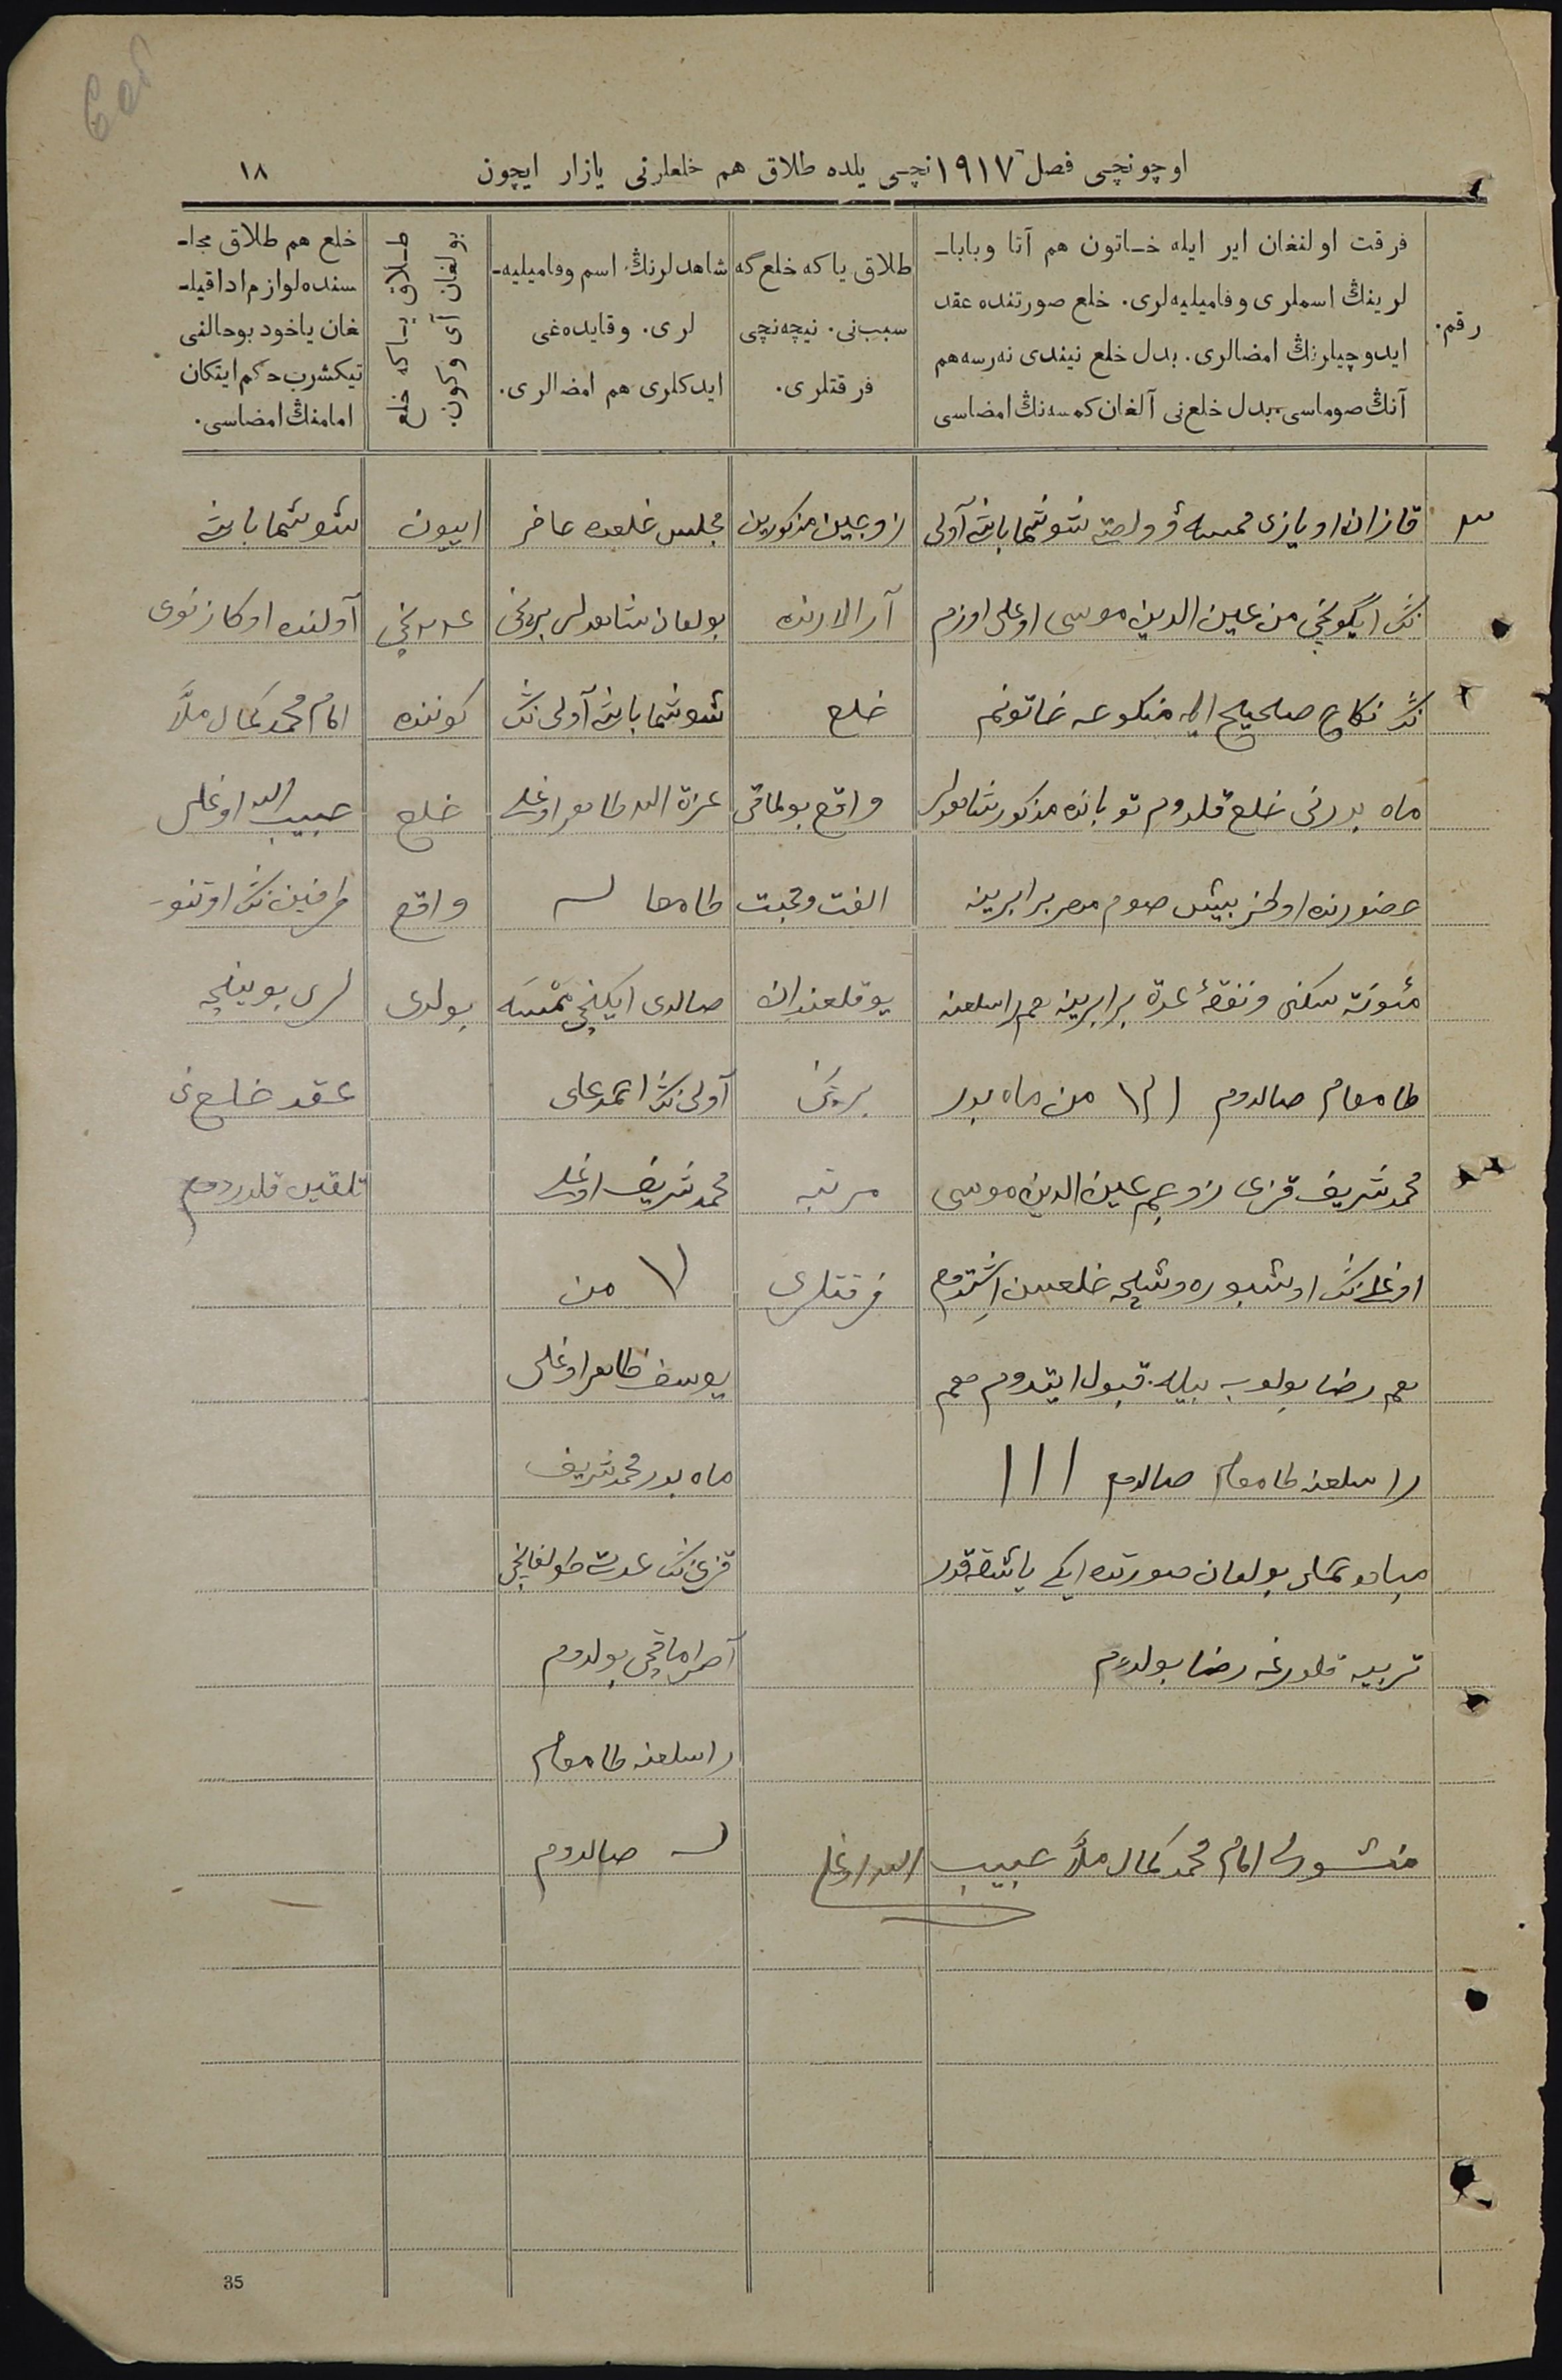 اوچونچی فصل ١٩١٧ نچی یلده طلاق هم خلعلرنی یازار ایچون
١٨
رقم.
فرقت اولنغان ایر ایله خاتون هم آتا وبابا-
لرینڭ اسملری وفامیلیه‌لری. خلع صورتنده عقد
ایدوچیلرنڭ امضالری. بدل خلع نیندی نه‌رسه هم
آنڭ صوماسی، بدل خلع‌نی آلغان کمسه‌نڭ امضاسی
طلاق یاکه خلع‌گه
سبب‌نی. نیچه‌نچی
فرقتلری.
شاهدلرنڭ اسم وفامیلیه-
لری. وقایده‌غی
ایدکلری هم امضالری.
طلاق یاکه خلع
بولغان آی وکون.
خلع هم طلاق مجا-
سنده لوازم ادا قیل-
غان یاخود بوحالنی
تیکشرب حکم ایتکان
امامنڭ امضاسی.
٣
قازان اویازی ... شوشما باشی آولی
نڭ ... من عین الدین موسی اوغلی اوزم
نڭ نکاح صحیح ایله منکوحه خاتونم
ماه بدرنی خلع قلدوم تو باننده مذکور شاهدلر
حضورنده اوطز بیش صوم مهر برابرینه
مئونة سکنی ونفقهٔ عدة برابرینه هم راسلغنه
طامغام صالدوم من ماه بدر
محمدشریف قزی زوجم عین الدین موسی
اوغلی‌نڭ اوشبو روشچه خلعسن اشتدوم
هم رضا بولوب بیله قبول ایتدوم هم
راسلغنه طامغام صالدوم
... بولغان صورتده ایکی یاشقه قدر
تربیه قلورغه رضا بولدوم
زوجین مذکورین
آرالارنده
خلع
واقع بولماقی
الفت ومحبت
یوقلغندان
برنچی
مرتبه
فرقتلری
مجلس خلعده حاضر
بولغان شاهدلر برنچی
شوشما باشی آولی‌نڭ
عزة الله طاهر اوغلی
طامغا
صالدی ایکنچی ...
آولی‌نڭ احمدعلی
محمدشریف اوغلی
من
یوسف طاهر اوغلی
ماه بدر محمدشریف
قزی‌نڭ عدت طولغانچی
آصراماقچی بولدوم
راسلغنه طامغام
صالدوم
اییون
نچی
کوننده
خلع
واقع
بولدی
شوشما باشی
آولنده اوکازنوی
امام محمدکمال ملا
حبیب الله اوغلی
طرفین‌نڭ اوتنو-
لری بوینچه
عقد خلع‌نی
تلقین قلدردوم
منشورلی امام محمدکمال ملا حبیب الله اوغلی
35